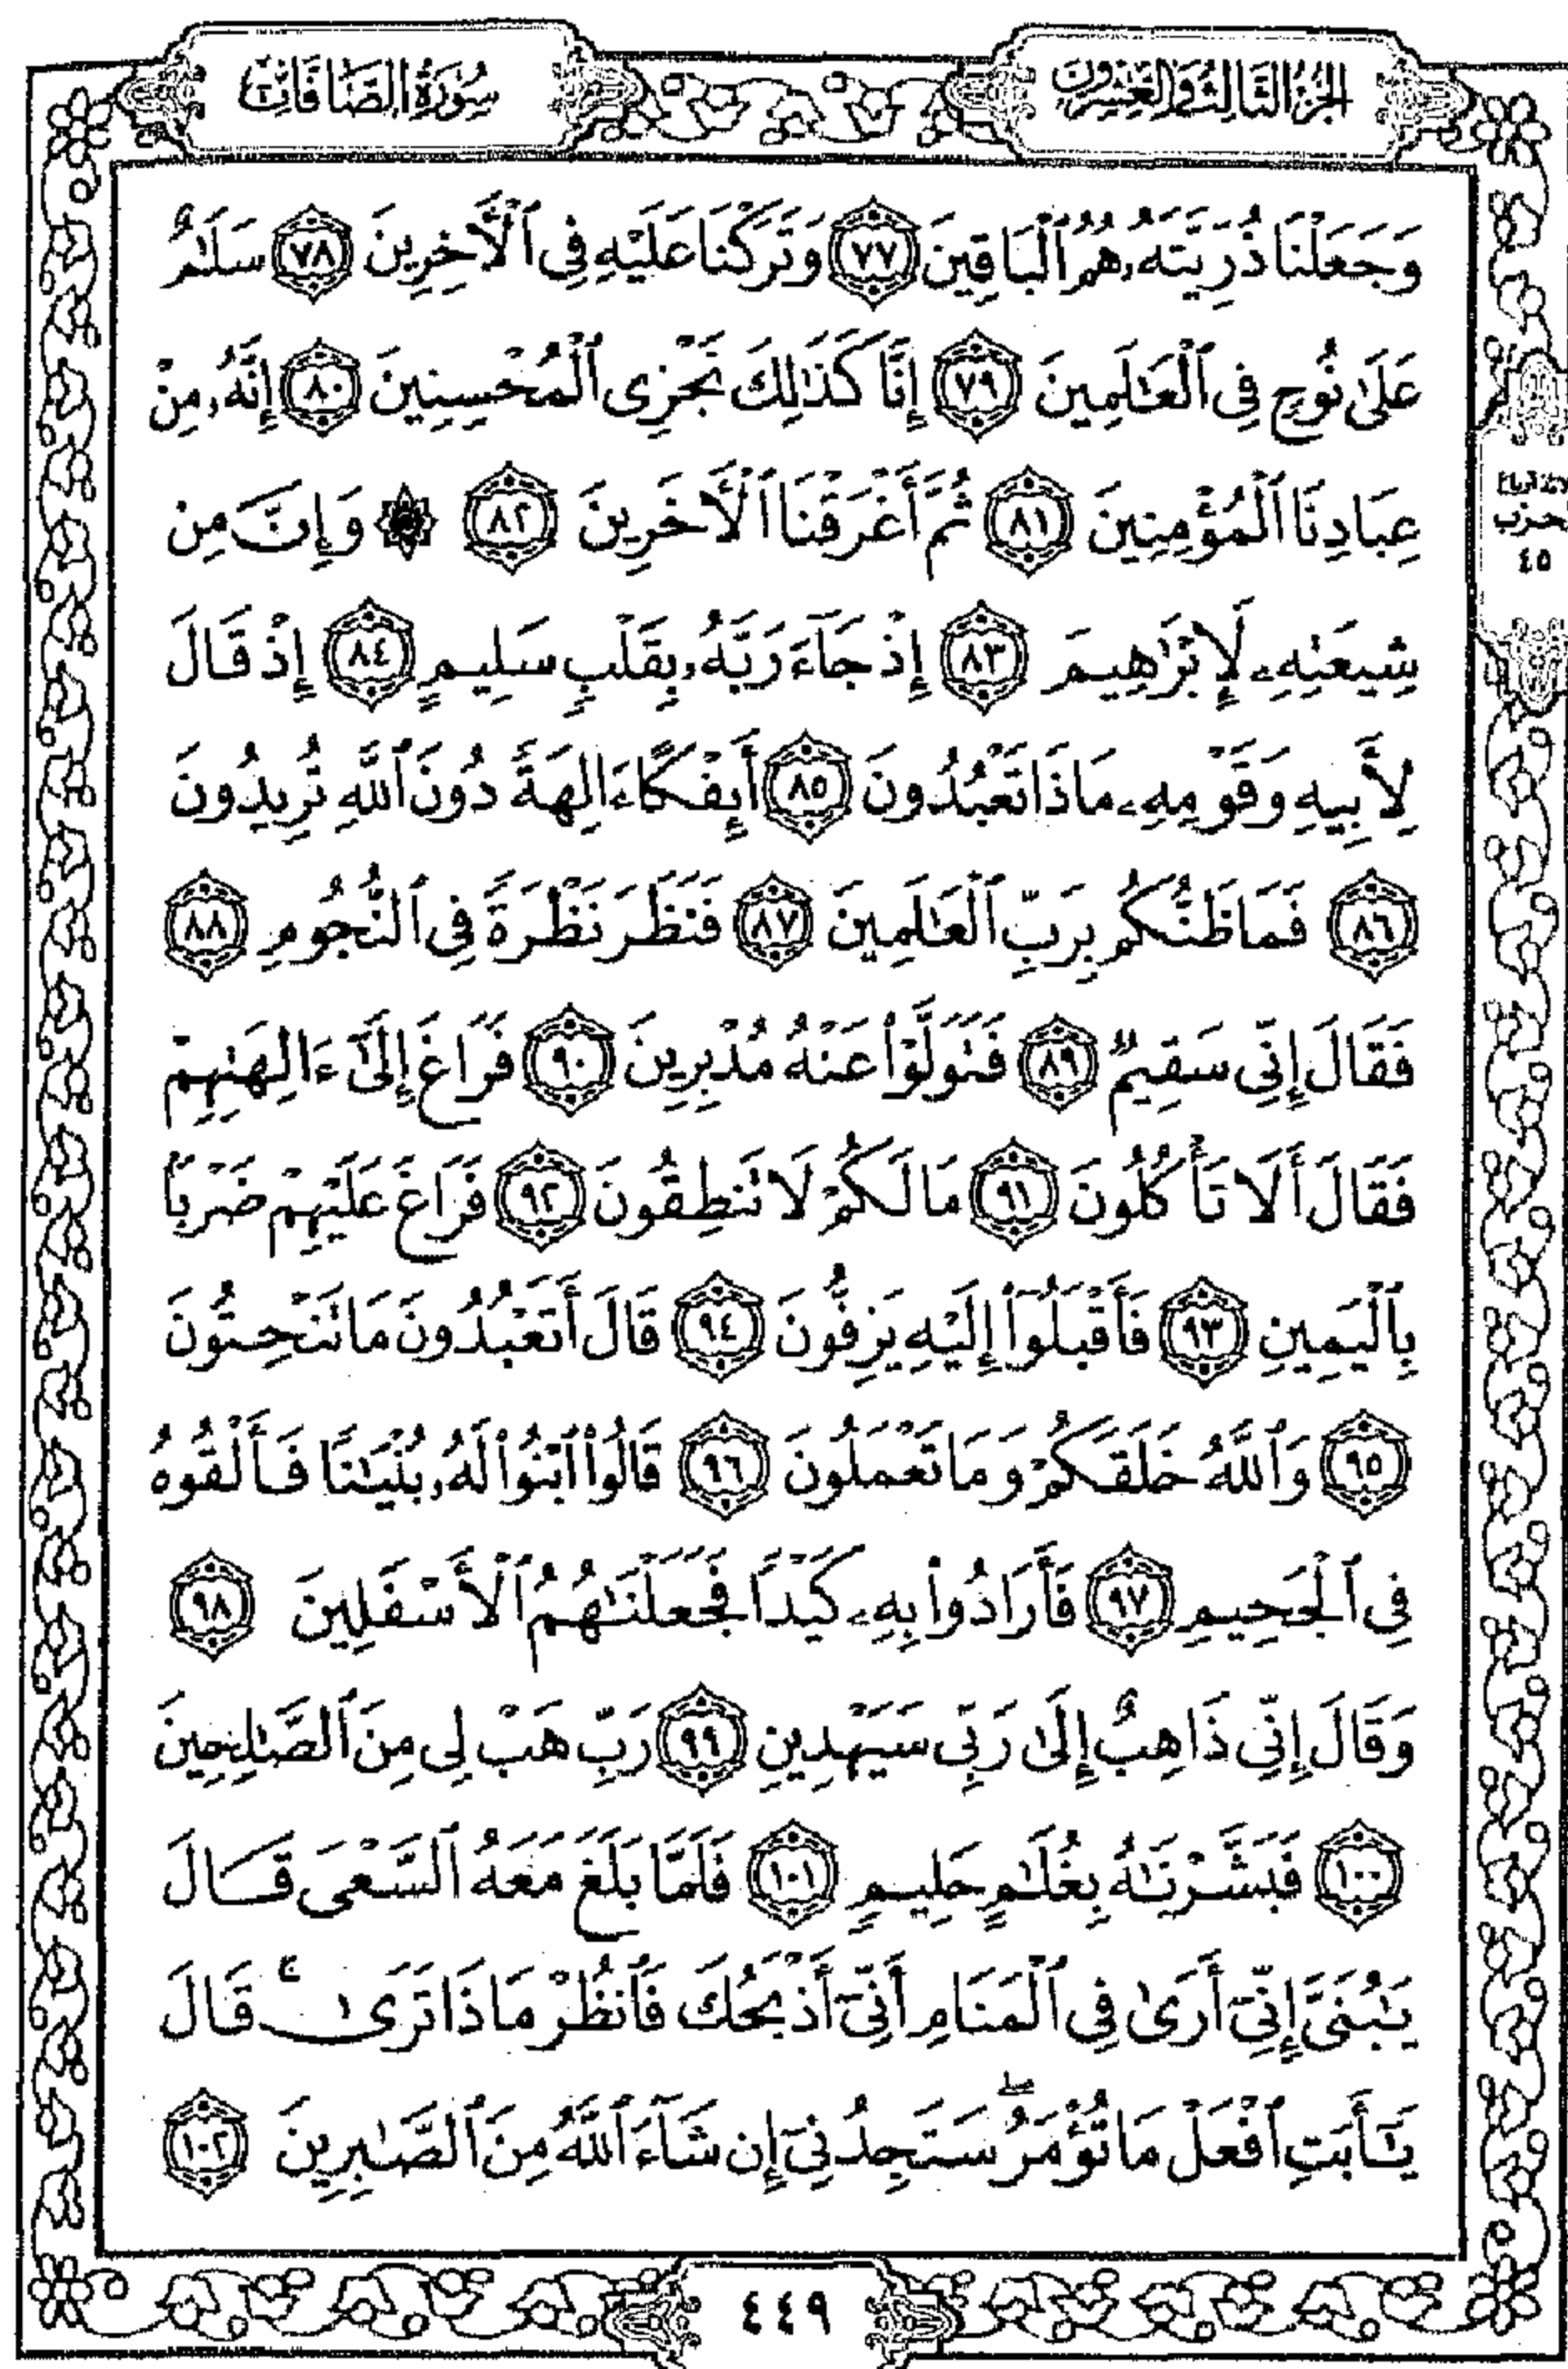 الجزء الثالث والعشرون
سورة الصافات
وَجَعَلْنَا ذُرِّيَّتَهُۥ هُمُ ٱلْبَاقِينَ ٧٧ وَتَرَكْنَا عَلَيْهِ فِى ٱلْأَخِرِينَ ٧٨ سَلَٰمٌ
عَلَىٰ نُوحٍ فِى ٱلْعَٰلَمِينَ ٧٩ إِنَّا كَذَٰلِكَ نَجْزِى ٱلْمُحْسِنِينَ ٨٠ إِنَّهُۥ مِنْ
عِبَادِنَا ٱلْمُؤْمِنِينَ ٨١ ثُمَّ أَغْرَقْنَا ٱلْأَخَرِينَ ٨٢ ۞ وَإِنَّ مِن
شِيعَتِهِۦ لَإِبْرَٰهِيمَ ٨٣ إِذْ جَآءَ رَبَّهُۥ بِقَلْبٍ سَلِيمٍ ٨٤ إِذْ قَالَ
لِأَبِيهِ وَقَوْمِهِۦ مَاذَا تَعْبُدُونَ ٨٥ أَئِفْكًا ءَالِهَةً دُونَ ٱللَّهِ تُرِيدُونَ
٨٦ فَمَا ظَنُّكُم بِرَبِّ ٱلْعَٰلَمِينَ ٨٧ فَنَظَرَ نَظْرَةً فِى ٱلنُّجُومِ ٨٨
فَقَالَ إِنِّى سَقِيمٌ ٨٩ فَتَوَلَّوْا۟ عَنْهُ مُدْبِرِينَ ٩٠ فَرَاغَ إِلَىٰٓ ءَالِهَتِهِمْ
فَقَالَ أَلَا تَأْكُلُونَ ٩١ مَا لَكُمْ لَا تَنطِقُونَ ٩٢ فَرَاغَ عَلَيْهِمْ ضَرْبًۢا
بِٱلْيَمِينِ ٩٣ فَأَقْبَلُوٓا۟ إِلَيْهِ يَزِفُّونَ ٩٤ قَالَ أَتَعْبُدُونَ مَا تَنْحِتُونَ
٩٥ وَٱللَّهُ خَلَقَكُمْ وَمَا تَعْمَلُونَ ٩٦ قَالُوا۟ ٱبْنُوا۟ لَهُۥ بُنْيَٰنًا فَأَلْقُوهُ
فِى ٱلْجَحِيمِ ٩٧ فَأَرَادُوا۟ بِهِۦ كَيْدًا فَجَعَلْنَٰهُمُ ٱلْأَسْفَلِينَ ٩٨
وَقَالَ إِنِّى ذَاهِبٌ إِلَىٰ رَبِّى سَيَهْدِينِ ٩٩ رَبِّ هَبْ لِى مِنَ ٱلصَّٰلِحِينَ
١٠٠ فَبَشَّرْنَٰهُ بِغُلَٰمٍ حَلِيمٍ ١٠١ فَلَمَّا بَلَغَ مَعَهُ ٱلسَّعْىَ قَالَ
يَٰبُنَىَّ إِنِّىٓ أَرَىٰ فِى ٱلْمَنَامِ أَنِّىٓ أَذْبَحُكَ فَٱنظُرْ مَاذَا تَرَىٰ ۚ قَالَ
يَٰٓأَبَتِ ٱفْعَلْ مَا تُؤْمَرُ ۖ سَتَجِدُنِىٓ إِن شَآءَ ٱللَّهُ مِنَ ٱلصَّٰبِرِينَ ١٠٢
٤٥
٤٤٩